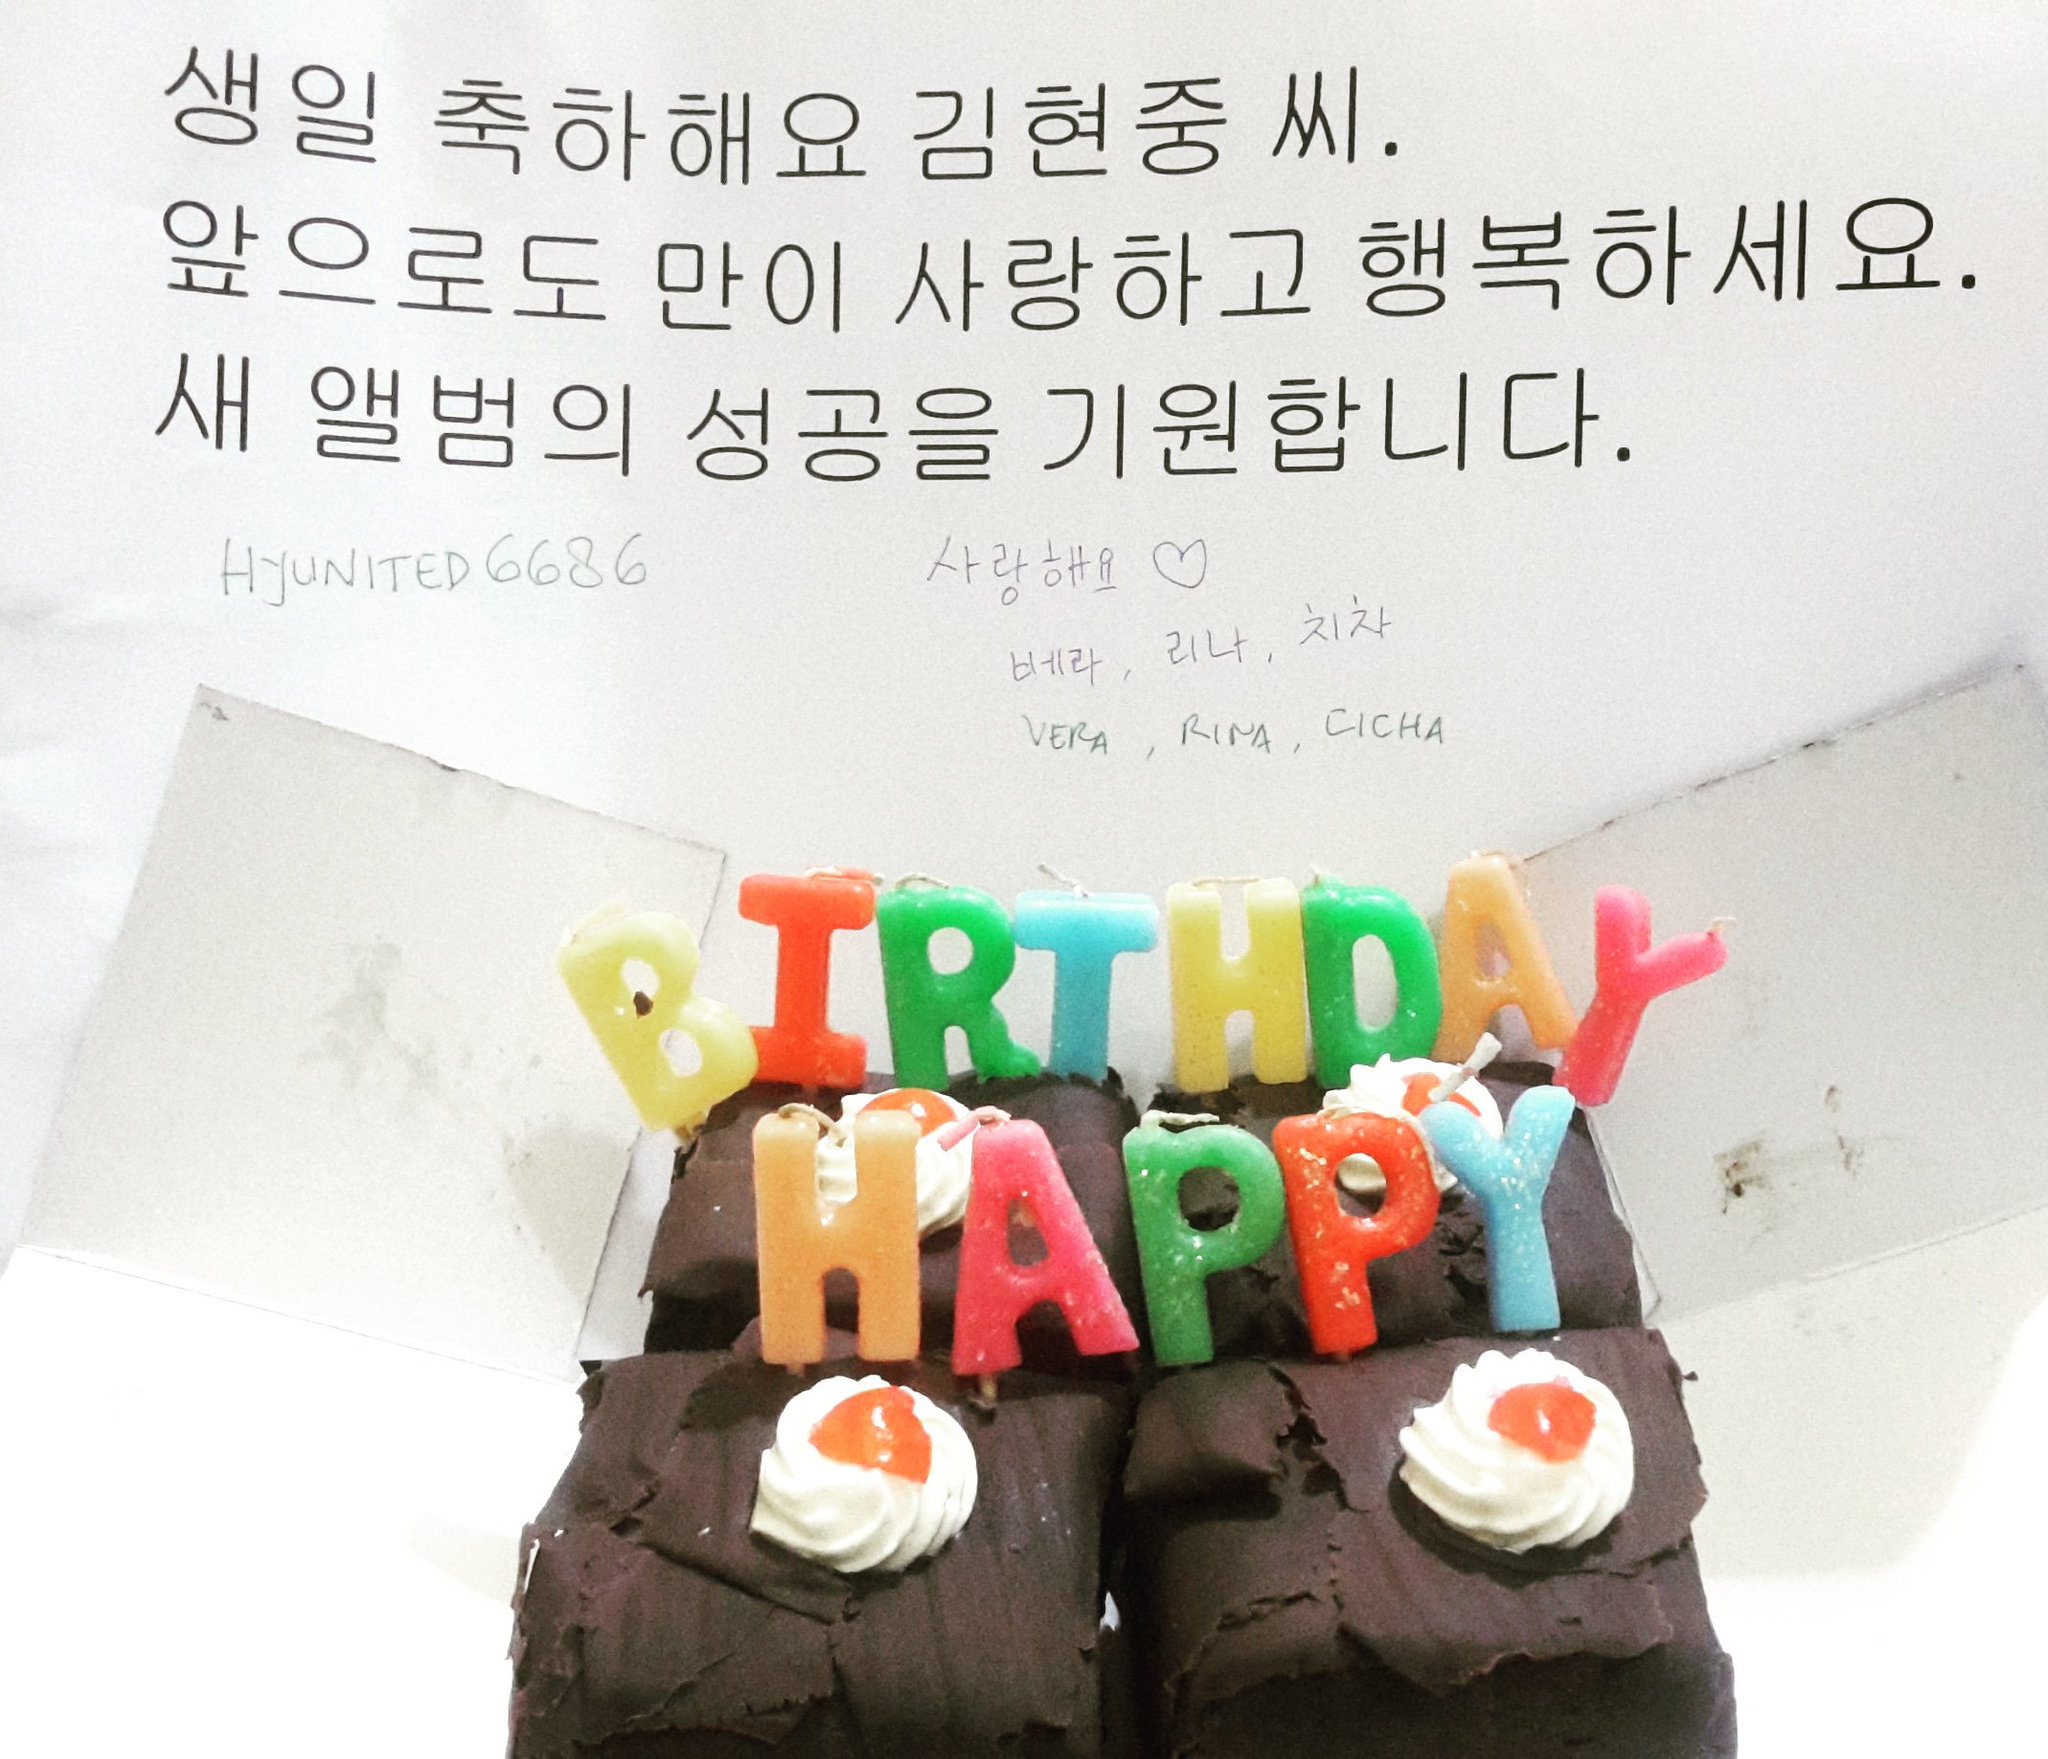 생일 축하해요 김현중 씨.
앞으로도 만이 사랑하고 행복하세요.
새 앨범의 성공을 기원합니다.
HYUNITED6686
사랑해요 ♡
베라, 리나, 치차
VERA, RINA, CICHA
BIRTHDAY
HAPPY